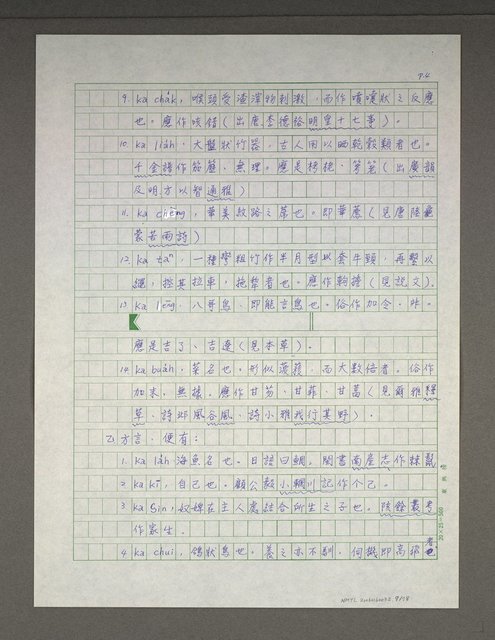 P.4
9. ka chák, 喉頭受渣滓物刺激,而作噴嚏狀之反應
也。應作咳錯(出唐李德裕明皇十七事)。
10. ka liah, 大盤狀竹器,古人用以晒乾穀類者也。
千金譜作笳䕠,無理。應是栲栳、笒筅(出廣韻
及明方以智通雅)
11. ka chēng, 華美紋路之蓆也。即華蓆(見唐陸龜
蒙苦雨詩)
12. ka taⁿ, 一種彎粗竹作半月型以套牛頸,再繫以
繩,控其拉車,拖犂者也。應作軥(見說文)。
13. ka lēng, 八哥鳥,即能言鳥也。俗作加令,非。
應是吉了、吉遼(見本草)。
14. ka buah, 菜名也。形似菠薐,而大數倍者。俗作
加末,無據。應作甘芴、甘菲、甘葍(見爾雅釋
草、詩邶風谷風、詩小雅我行其野)。
乙方言、便有:
1. ka lah 海魚名也。日語曰鯛。閩書南產志作棘鬣
2. ka kī, 自己也。顧公燮小輞川記作个己。
3. ka Sin, 奴婢在主人處結合所生之子也。陔餘叢考
作家生。
4. ka chui, 鴿狀鳥也。養之亦不馴,伺機即高飛者也
20×25=500
NMTL 9/18